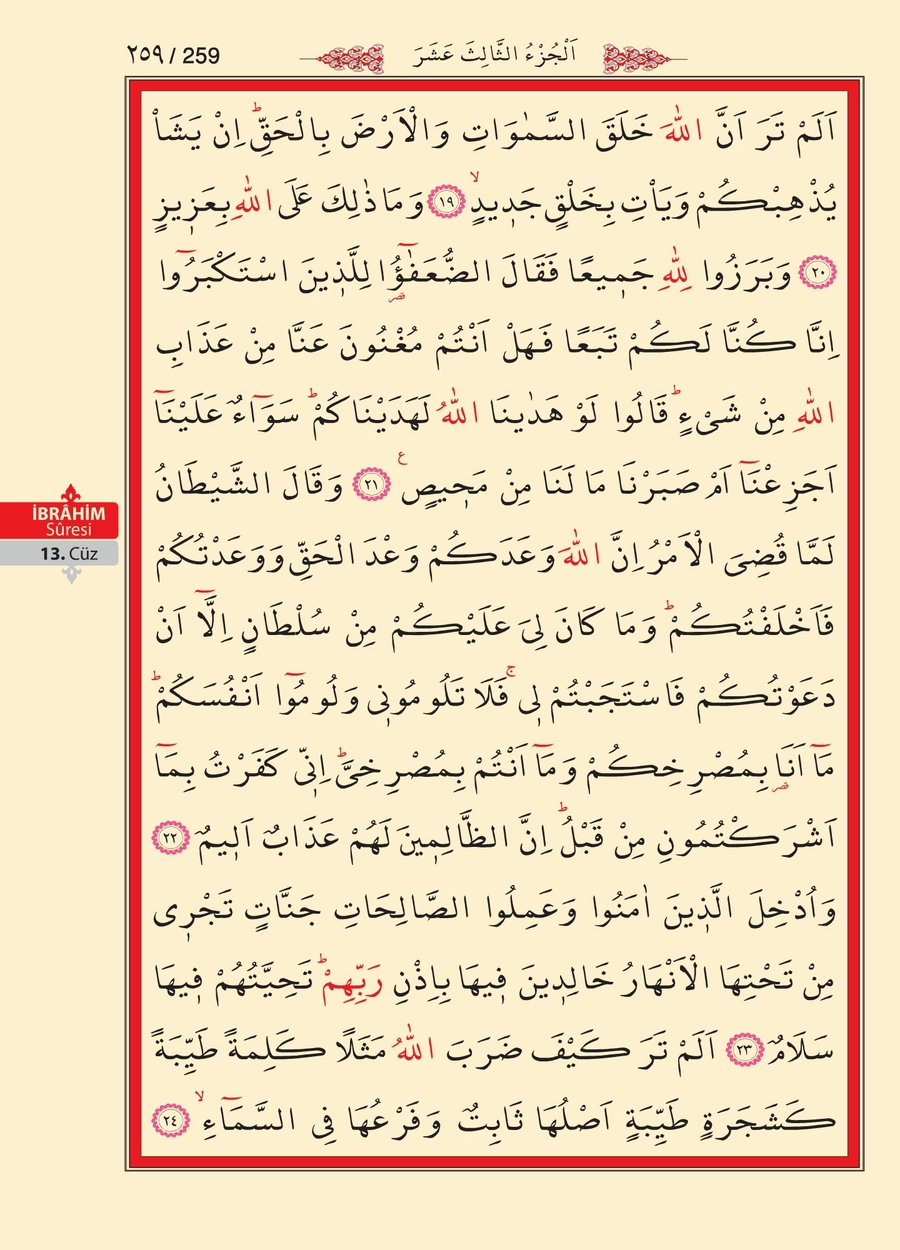 ٢٥٩ / 259
اَلْجُزْءُ الثَّالِثَ عَشَرَ
اَلَمْ تَرَ اَنَّ اللّٰهَ خَلَقَ السَّمٰوَاتِ وَالْاَرْضَ بِالْحَقِّۜ اِنْ يَشَأْ
يُذْهِبْكُمْ وَيَأْتِ بِخَلْقٍ جَد۪يدٍۙ ﴿١٩﴾ وَمَا ذٰلِكَ عَلَى اللّٰهِ بِعَز۪يزٍ
﴿٢٠﴾ وَبَرَزُوا لِلّٰهِ جَم۪يعًا فَقَالَ الضُّعَفٰٓؤُ۬ا لِلَّذ۪ينَ اسْتَكْبَرُٓوا
اِنَّا كُنَّا لَكُمْ تَبَعًا فَهَلْ اَنْتُمْ مُغْنُونَ عَنَّا مِنْ عَذَابِ
اللّٰهِ مِنْ شَيْءٍۜ قَالُوا لَوْ هَدٰينَا اللّٰهُ لَهَدَيْنَاكُمْۜ سَوَٓاءٌ عَلَيْنَٓا
اَجَزِعْنَٓا اَمْ صَبَرْنَا مَا لَنَا مِنْ مَح۪يصٍ۟ ﴿٢١﴾ وَقَالَ الشَّيْطَانُ
لَمَّا قُضِيَ الْاَمْرُ اِنَّ اللّٰهَ وَعَدَكُمْ وَعْدَ الْحَقِّ وَوَعَدْتُكُمْ
فَاَخْلَفْتُكُمْۜ وَمَا كَانَ لِيَ عَلَيْكُمْ مِنْ سُلْطَانٍ اِلَّٓا اَنْ
دَعَوْتُكُمْ فَاسْتَجَبْتُمْ ل۪يۚ فَلَا تَلُومُون۪ي وَلُومُٓوا اَنْفُسَكُمْۜ
مَٓا اَنَا۬ بِمُصْرِخِكُمْ وَمَٓا اَنْتُمْ بِمُصْرِخِيَّۜ اِنّ۪ي كَفَرْتُ بِمَٓا
اَشْرَكْتُمُونِ مِنْ قَبْلُۜ اِنَّ الظَّالِم۪ينَ لَهُمْ عَذَابٌ اَل۪يمٌ ﴿٢٢﴾
وَاُدْخِلَ الَّذ۪ينَ اٰمَنُوا وَعَمِلُوا الصَّالِحَاتِ جَنَّاتٍ تَجْر۪ي
مِنْ تَحْتِهَا الْاَنْهَارُ خَالِد۪ينَ ف۪يهَا بِاِذْنِ رَبِّهِمْۜ تَحِيَّتُهُمْ ف۪يهَا
سَلَامٌ ﴿٢٣﴾ اَلَمْ تَرَ كَيْفَ ضَرَبَ اللّٰهُ مَثَلًا كَلِمَةً طَيِّبَةً
كَشَجَرَةٍ طَيِّبَةٍ اَصْلُهَا ثَابِتٌ وَفَرْعُهَا فِي السَّمَٓاءِۙ ﴿٢٤﴾
İBRÂHİM
Sûresi
13. Cüz